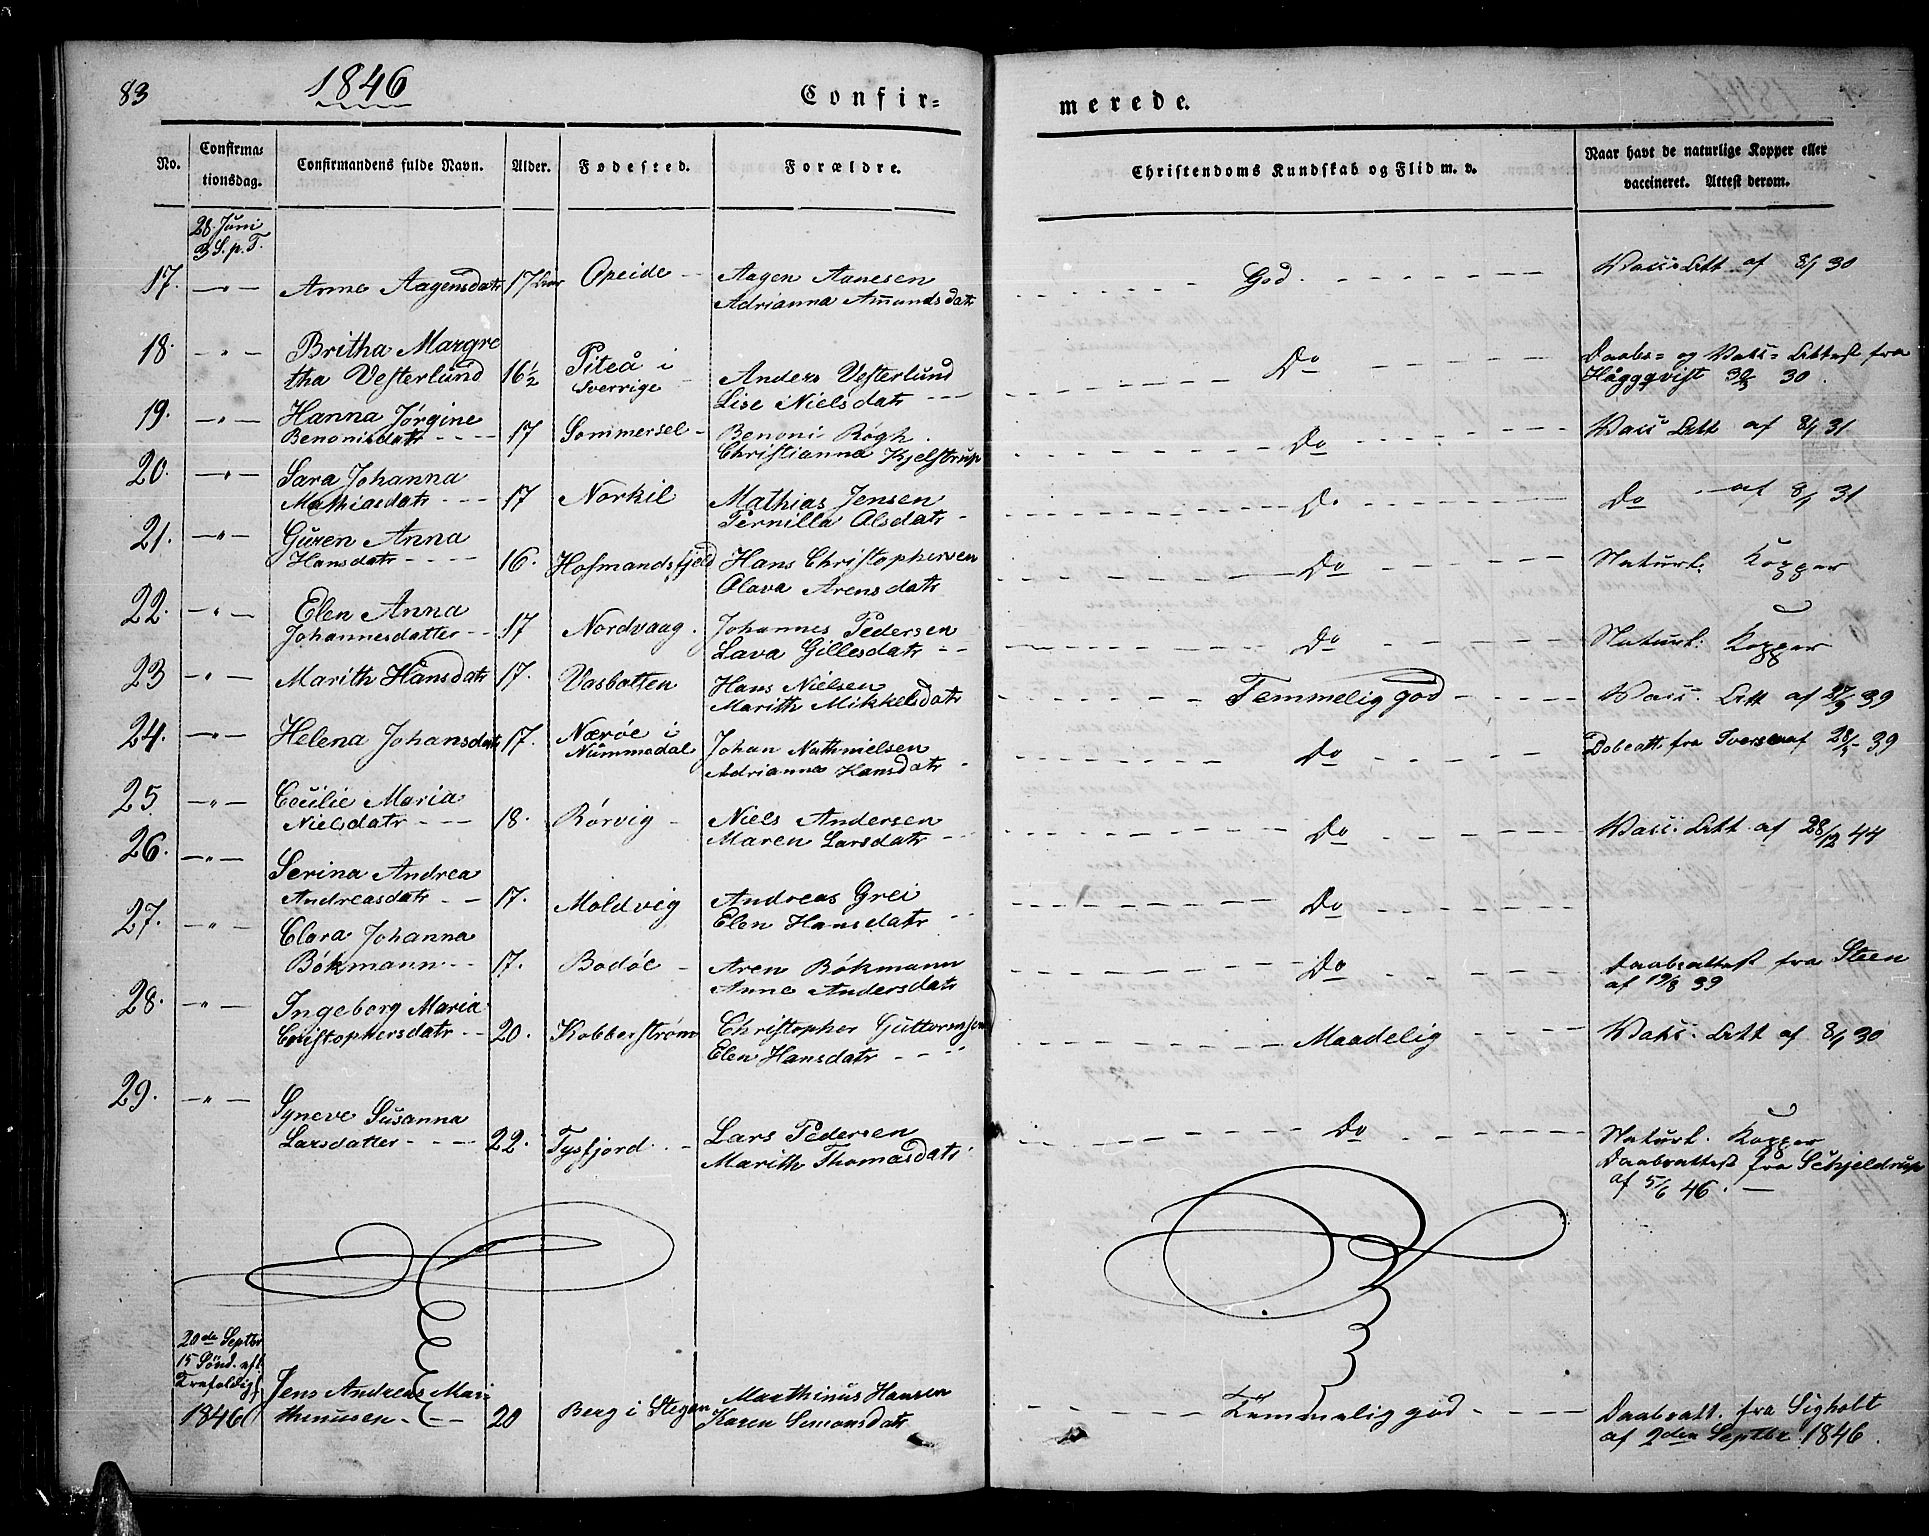 83
1846
Confir=
merede.
No.
Confirma=
tionsdag.
Confirmandens fulde Navn.
Alder.
Fødested.
Forældre.
Christendoms Kundskab og Flid m. v.
Naar havt de naturlige Kopper eller
vaccineret. Attest derom.
28. Juni
3 S. p. T.
17. — " — Anne Aagensdatr 17 Opeide - Aagen Aanesen
Adrianna Amundsdatr
God. Vacc. Att. af 8/7 30
18. — " — Britha Margre
tha Vesterlund 16½ Piteå i
Sverrige - Anders Vesterlund
Lise Nielsdatr
Do Daabs= og Vacc= Attest fra
Häggqvist 30.
19. — " — Hanna Jørgine
Benonisdatr 17 Sommersel - Benoni Røgh.
Christianna Kjelstrup
Do Vacc Att af 8/7 31
20. — " — Sara Johanna
Mathiasdatr 17 Norkil Mathias Jensen
Pernilla Olsdatr
Do Do af 8/7 31
21. — " — Guren Anna
Hansdatr 16. Hofmandsfjeld Hans Christophersen
Olava Arensdatr
Do Naturl. Kopper
22. — " — Elen Anna
Johannesdatter 17 Nordvaag. Johannes Pedersen
Lava Gillesdatr
Do Naturl. Kopper
23 — " — Marith Hansdatr 17. Vasbotten Hans Nielsen
Marith Mikkelsdatr
Temmelig god Vacc. Att af 27/9 39
24. — " — Helena Johansdatr 17. Nærøe i
Nummedal Johan Nathnielsen
Adrianna Hansdatr
Do Dobeatt. fra Iversen af 39
25. — " — Cecilie Maria
Nielsdatr 18. Rørvig - Niels Andersen
Maren Larsdatr
Do Vacc. Att. af 28/12 44
26. — " — Serina Andrea
Andreasdatr 17. Moldvig Andreas Grei
Elen Hansdatr
Do
27. — " — Clara Johanna
Bøkmann 17. Bodøe - Aren Bøkmann
Anne Andersdatr
Do Daabsattest fra Steen
af 19/8 39
28. — " — Ingeborg Maria
Cristophersdatr 20. Kobberstrøm Christopher Guttormsen
Elen Hansdatr
Maadelig Vaks. Att af 8/7 30
29. — " — Syneve Susanna
Larsdatter 22. Tysfjord. - Lars Pedersen
Marith Thomasdatr
Do Naturl. Kopper
Daabsattest fra Schjeldrup
af 5/6 46. —
20de Septbr
15 Sønd. eft.
Trefoldigh
1846
Jens Andreas Mar
thinussen 20 Berg i Stegen Marthinus Hansen
Karen Simonsdatr
Temmelig god Daabsatt. fra Sigholt
af 2den Septbr 1846.